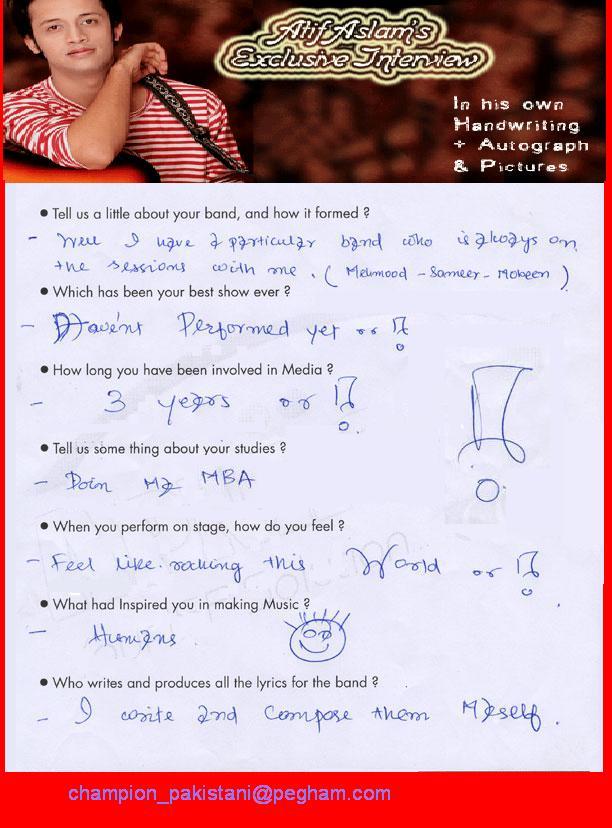 Atif Aslam's
Exclusive Interview
In his own
Handwriting
+ Autograph
& Pictures
• Tell us a little about your band, and how it formed ?
- Well I have a particular band who is always on
the sessions with me. ( Mehmood - Sameer - Mobeen )
• Which has been your best show ever ?
- Haven't Performed yet or
• How long you have been involved in Media ?
- 3 years or
• Tell us some thing about your studies ?
- Doin My MBA
• When you perform on stage, how do you feel ?
- Feel like rocking this World or
• What had Inspired you in making Music ?
- Humans
• Who writes and produces all the lyrics for the band ?
- I write and compose them Myself.
champion_pakistani@pegham.com